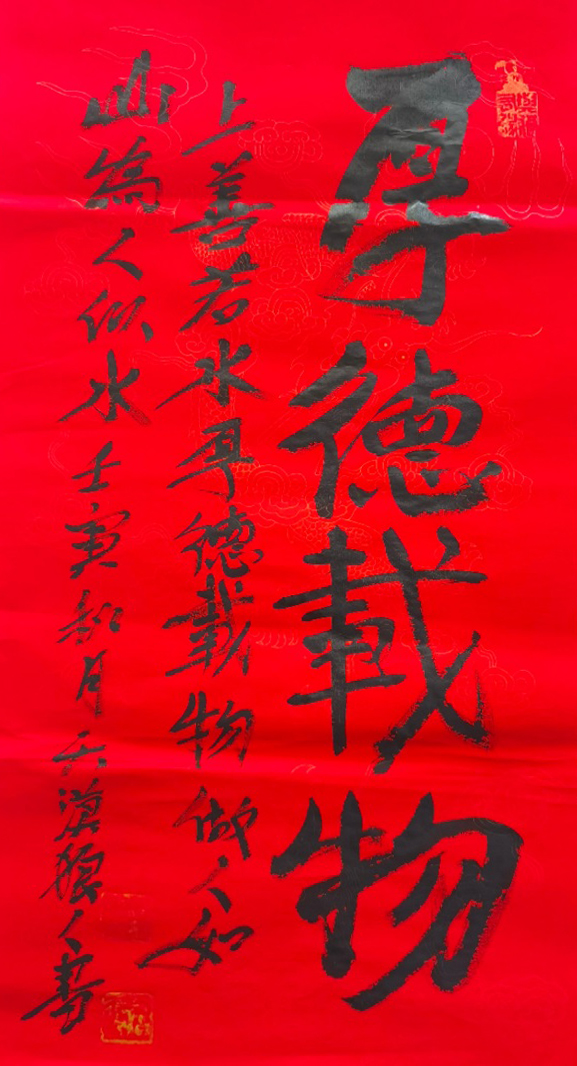 厚德載物
上善若水厚德載物做人如
山為人似水壬寅月大漠狼人書